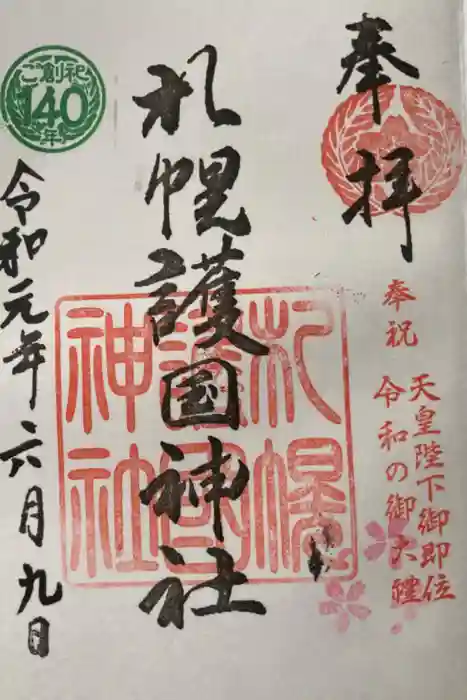 奉拝
奉祝
天皇陛下御即位
令和の御大禮
札幌護国神社
札幌
護國
神社
ご創祀
140
年
令和元年六月九日